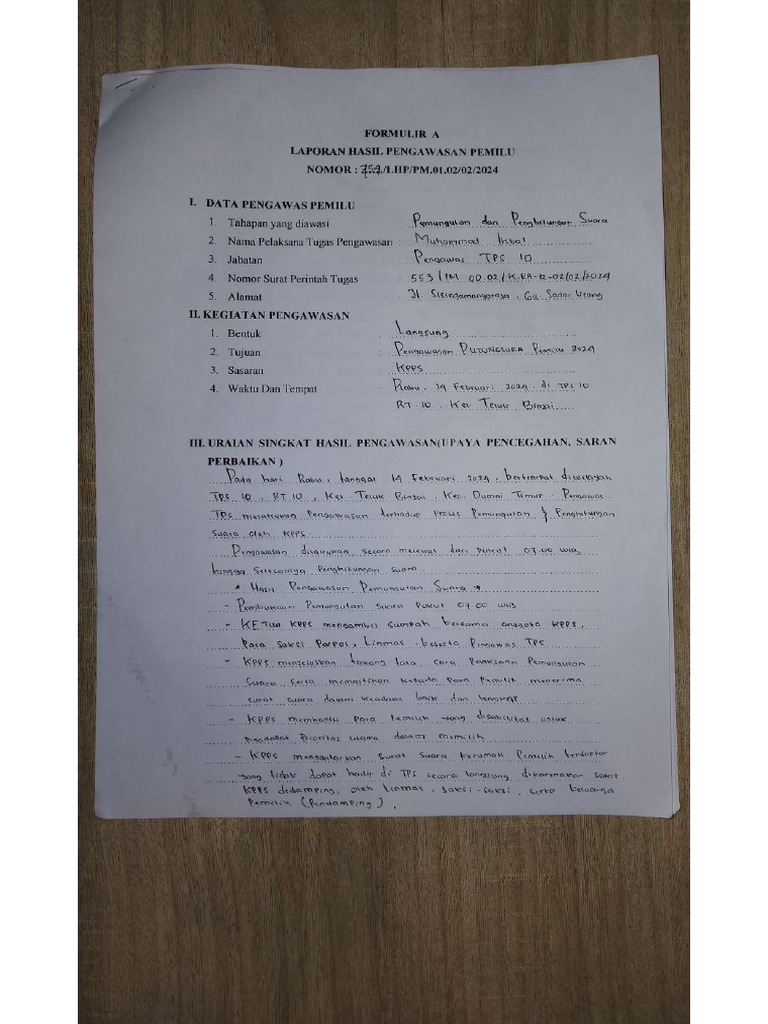 FORMULIR A
LAPORAN HASIL PENGAWASAN PEMILU
NOMOR : 759/LHP/PM.01.02/02/2024
I. DATA PENGAWAS PEMILU
1. Tahapan yang diawasi : Pemungutan dan Penghitungan Suara
2. Nama Pelaksana Tugas Pengawasan : Muhammad Ikbal
3. Jabatan : Pengawas TPS 10
4. Nomor Surat Perintah Tugas : 553/PM.00.02/K.RA-12-02/02/2024
5. Alamat : Jl. Sisingamangaraja, Gg.
II. KEGIATAN PENGAWASAN
1. Bentuk : Langsung
2. Tujuan : Pengawasan PUTUNGSURA Pemilu 2024
3. Sasaran : KPPS
4. Waktu Dan Tempat : Rabu, 14 Februari 2024, di TPS 10
RT. 10, Kel Teluk Binjai
III. URAIAN SINGKAT HASIL PENGAWASAN(UPAYA PENCEGAHAN, SARAN
PERBAIKAN )
Pada hari Rabu, tanggal 14 Februari 2024, bertempat diwilayah
TPS 10, RT 10, Kel Teluk Binjai, Kec. Dumai Timur. Pengawas
TPS melakukan Pengawasan terhadap Proses Pemungutan & Penghitungan
Suara oleh KPPS.
Pengawasan dilakukan secara melekat dari pukul 07.00 wib
hingga selesainya Penghitungan suara.
* Hasil Pengawasan Pemungutan Suara *
- Pembukaan Pemungutan suara Pukul 07.00 wib
- KETUA KPPS mengambil sumpah bersama anggota KPPS,
Para saksi Parpol, Linmas beserta Pengawas TPS
- KPPS menjelaskan tentang tata cara Pelaksana Pemungutan
Suara serta memastikan kepada para Pemilih menerima
surat suara dalam keadaan baik dan lengkap
- KPPS membantu para Pemilih yang disabilitas untuk
mendapat Prioritas utama dalam memilih
- KPPS mengantarkan Surat Suara kerumah Pemilih terdaftar
yang tidak dapat hadir di TPS secara langsung dikarenakan sakit.
KPPS didampingi oleh Linmas, saksi-saksi, serta keluarga
Pemilih (Pendamping).